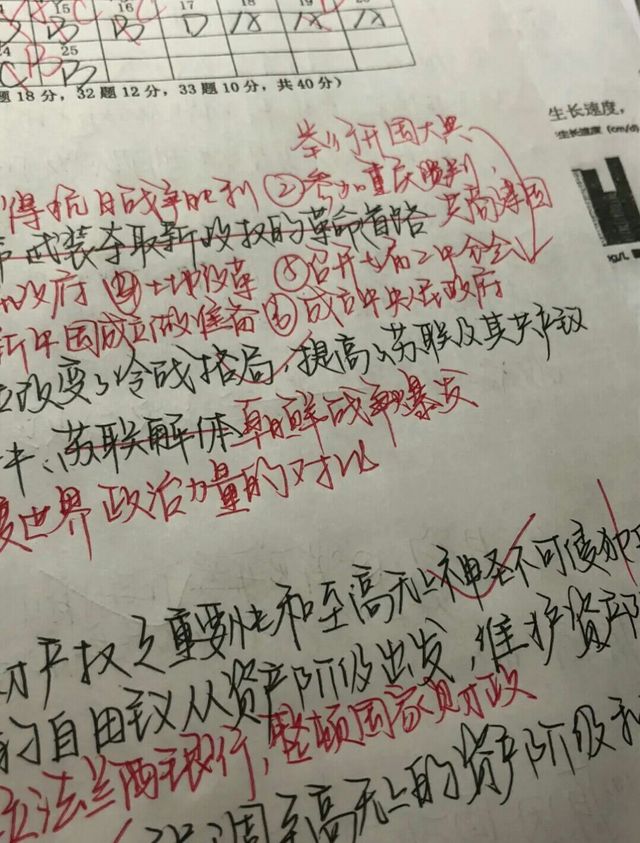 15 16 17 18 19 20
B B D
24 25
C B B
题 18 分，32 题 12 分，33 题 10 分，共 40 分）
生长速度，
生长速度 (cm/d)
举行开国大典
得抗日战争胜利 ②参加重庆谈判，
武装夺取新政权的革命道路 共商建国
政府 ④土地改革 ⑤召开七届二中全会
新中国成立做准备 ⑥成立中央人民政府
改变了冷战格局，提高了苏联及其共产议
苏联解体 朝鲜战争爆发
世界政治力量的对比
财产权之重要性和至高无上神圣不可侵犯
的自由主义从资产阶级出发，维护资产阶
立法兰西银行，整顿国家财政
调至高无上的资产阶级利